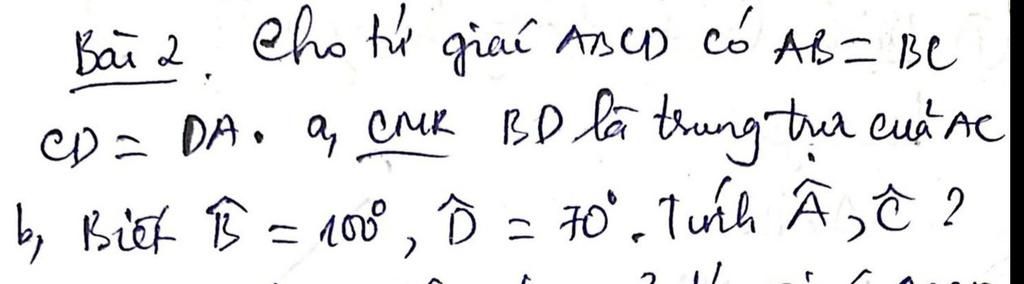 Bài 2. Cho tứ giác ABCD có AB = BC
CD = DA. a, CMR BD là trung trực của AC
b, Biết B̂ = 100°, D̂ = 70°. Tính Â, Ĉ ?